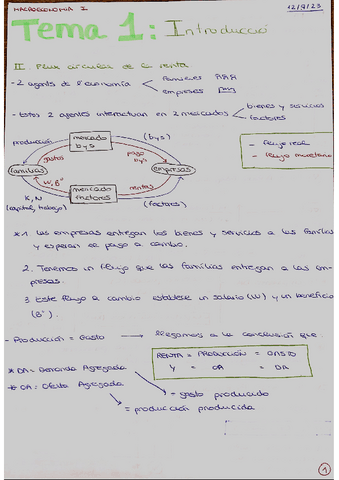 MACROECONOMIA I
12/9/23
Tema 1: Introducció
II. Flux circular de la renta
- 2 agents de l'economia
families
empreses
- Estos 2 agentes interactuan en 2 mercados
bienes y servicios
factores
producción
mercado
b y s
(b y s)
gastos
pago
b y s
familias
empresas
W, Bº
mercado
factores
rentas
K, N
(capital, trabajo)
(factores)
- flujo real
- flujo monetario
* 1. Las empresas entregan los bienes y servicios a las familias
y esperan el pago a cambio.
2. Tenemos un flujo que las familias entregan a las em-
presas.
3. Este flujo a cambio establece un salario (W) y un beneficio
(Bº).
- Producción = Gasto → llegamos a la conclusión que:
RENTA = PRODUCCIÓN = GASTO
Y = OA = DA
* DA: Demanda Agregada
* OA: Oferta Agregada
= gasto producido
= producción producida
1